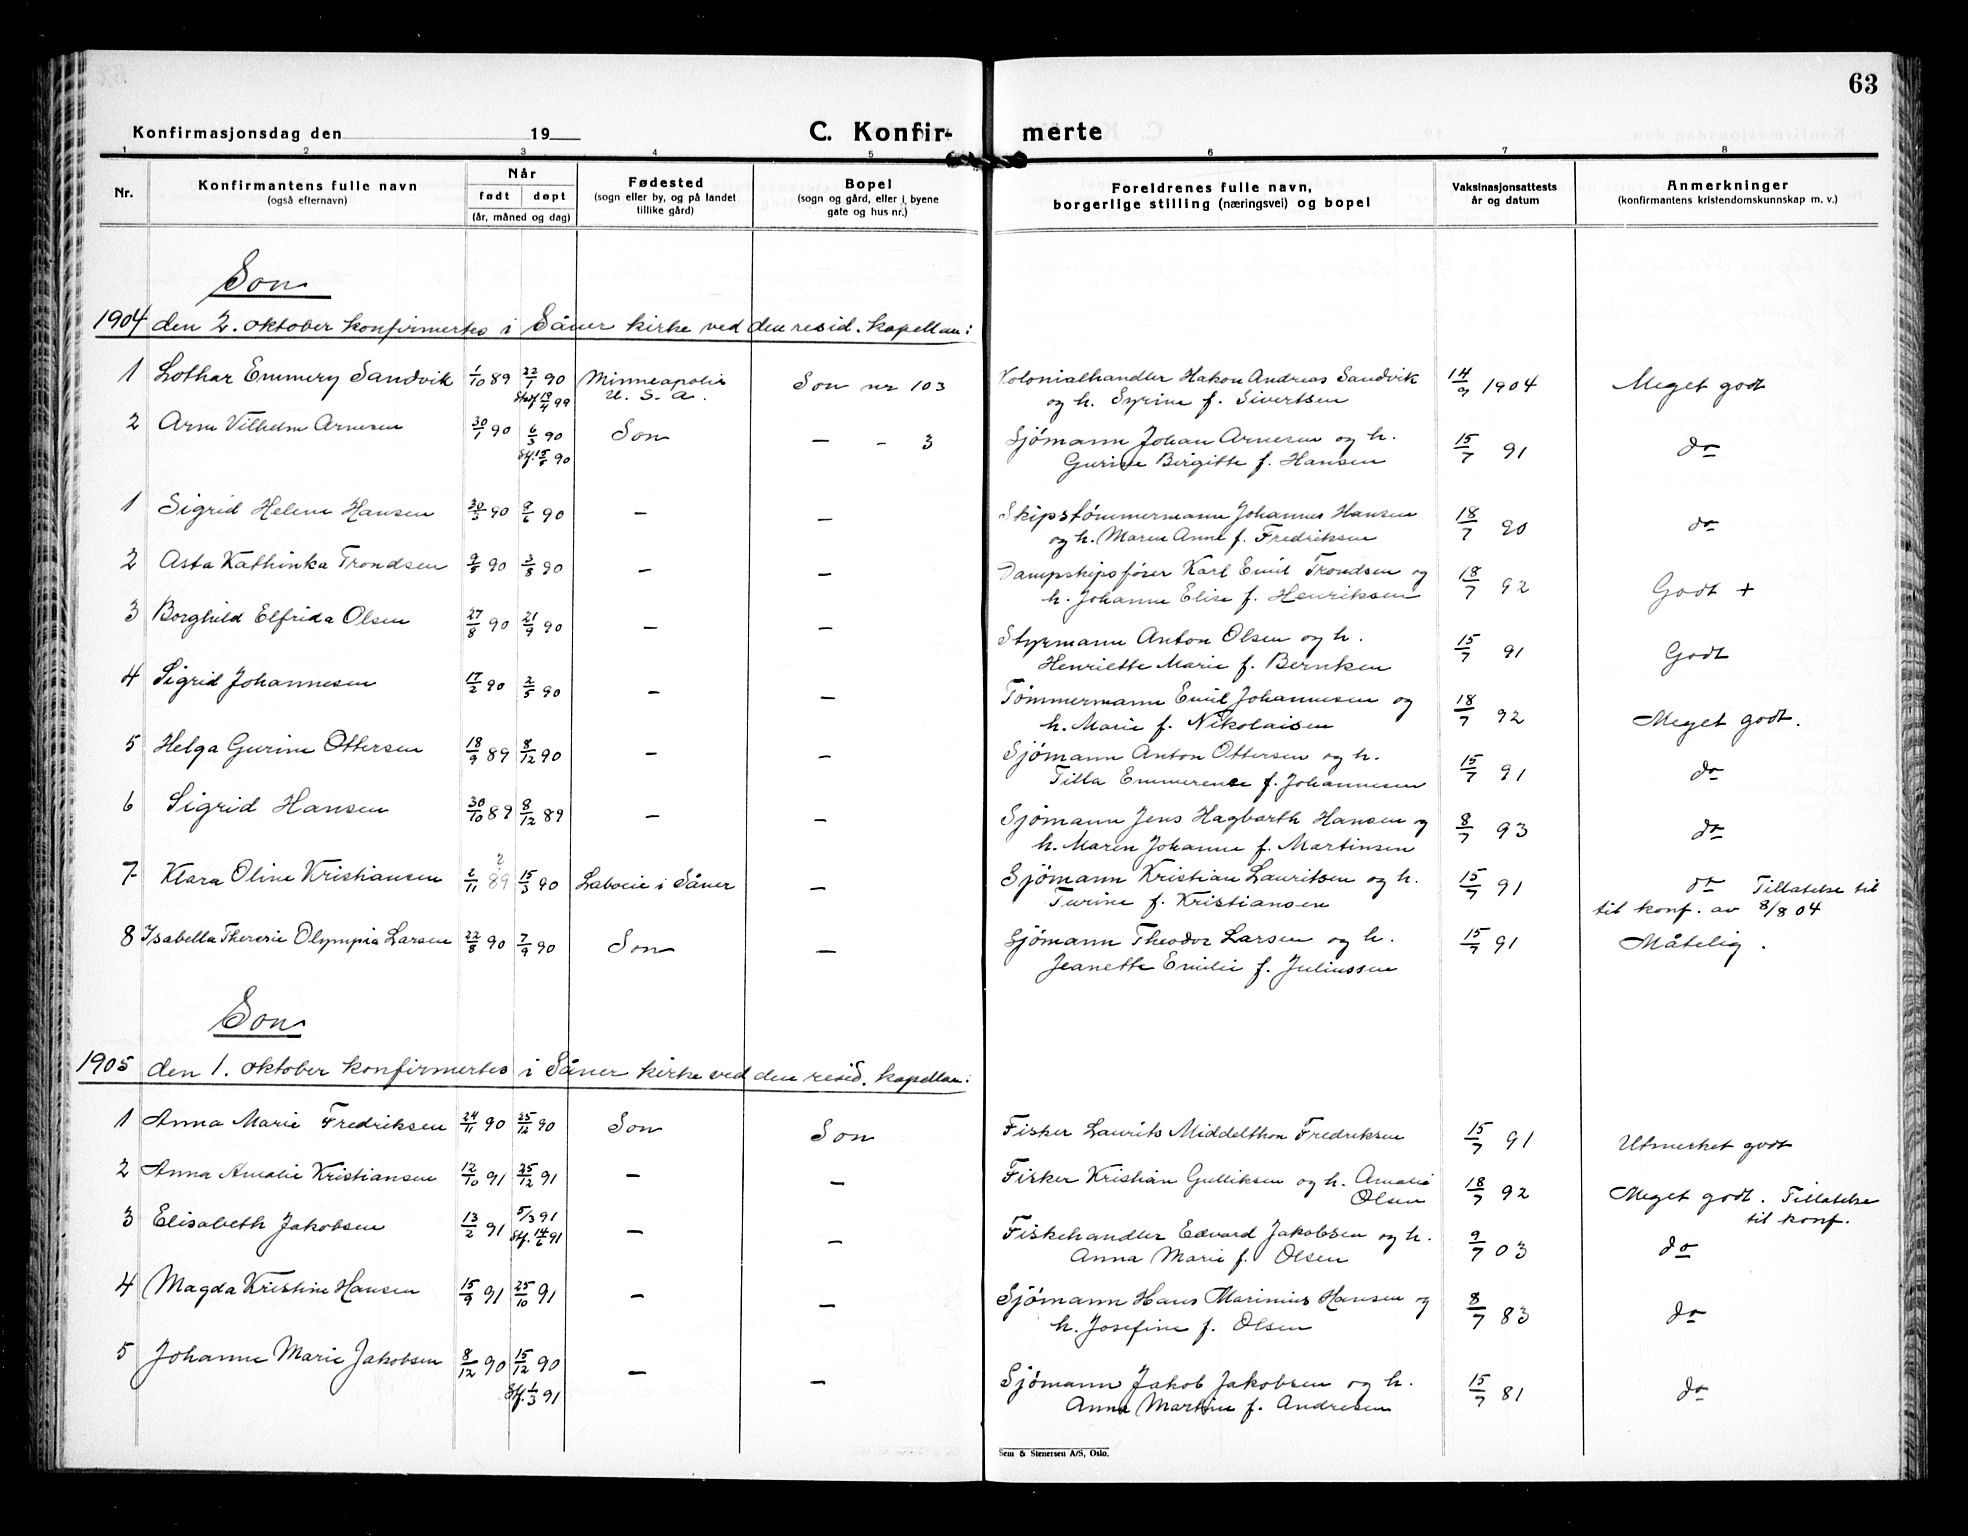 63
Konfirmasjonsdag den 19 C. Konfir- merte
1 2 3 4 5 6 7 8
Nr. Konfirmantens fulle navn (også efternavn) Når født døpt (år, måned og dag) Fødested (sogn eller by, og på landet tillike gård) Bopel (sogn og gård, eller i byene gate og hus nr.) Foreldrenes fulle navn, borgerlige stilling (næringsvei) og bopel Vaksinasjonsattests år og datum Anmerkninger (konfirmantens kristendomskunnskap m. v.)
Son
1904 den 2. oktober konfirmertes i Såner kirke ved den resid. kapellan:
1 Lothar Emmery Sandvik 1/10 89 22/1 90 Minneapolis Son nr 103 Kolonialhandler Hakon Andreas Sandvik 14/9 1904 Meget godt
99 U. S. A. og h. Syrine f. Sivertsen
2 Arne Vilhelm Arnesen 30/1 90 6/3 90 Son — - 3 Sjømann Johan Arnesen og h. 15/7 91 do
90 Gurine Birgitte f. Hansen
1 Sigrid Helene Hansen 30/3 90 8/6 90 — — Skipstømmermann Johannes Hansen 18/7 90 do
og h. Maren Anne f. Fredriksen
2 Asta Kathinka Trondsen 9/5 90 3/8 90 — — Dampskipsfører Karl Emil Trondsen og 18/7 92 Godt +
h. Johanne Elise f. Henriksen
3 Borghild Elfrida Olsen 27/8 90 21/9 90 — — Styrmann Anton Olsen og h. 15/7 91 Godt
Henriette Marie f. Berntsen
4 Sigrid Johannesen 17/2 90 2/5 90 — — Tømmermann Emil Johannesen og 18/7 92 Meget godt.
h. Marie f. Nikolaisen
5 Helga Gurine Ottersen 18/9 89 8/12 90 — — Sjømann Anton Ottersen og h. 15/7 91 do
Tilla Emmerense f. Johannesen
6 Sigrid Hansen 30/10 89 8/12 89 — — Sjømann Jens Hagbarth Hansen og 8/7 93 do
h. Maren Johanne f. Martinsen
?
7 Klara Oline Kristiansen 2/11 89 15/3 90 Laboeie i Såner — Sjømann Kristian Lauritsen og h. 15/7 91 do Tillatelse til
Turine f. Kristiansen til konf. av 8/8 04
8 Isabella Theresie Olympia Larsen 22/8 90 7/9 90 Son — Sjømann Theodor Larsen og h. 15/7 91 Måtelig.
Jeanette Emilie f. Juliussen
Son
1905 den 1. oktober konfirmertes i Såner kirke ved den resid. kapellan:
1 Anna Marie Fredriksen 24/11 90 25/12 90 Son Son Fisker Laurits Middelthon Fredriksen 15/7 91 Utmerket godt
2 Anna Amalie Kristiansen 12/10 91 25/12 91 — — Fisker Kristian Gulliksen og h. Amalie 18/7 92 Meget godt. Tillatelse
Olsen til konf.
3 Elisabeth Jakobsen 13/2 91 5/3 91 — — Fiskehandler Edvard Jakobsen og h. 9/7 03 do
Stf. 14/6 91 Anna Marie f. Olsen
4 Magda Kristine Hansen 15/9 91 25/10 91 — — Sjømann Hans Marinius Hansen og 8/7 83 do
h. Josefine f. Olsen
5 Johanne Marie Jakobsen 8/12 90 15/12 90 — — Sjømann Jakob Jakobsen og h. 15/7 81 do
Stf. 1/3 91 Anna Martine f. Andresen
Sem & Stenersen A/S, Oslo.